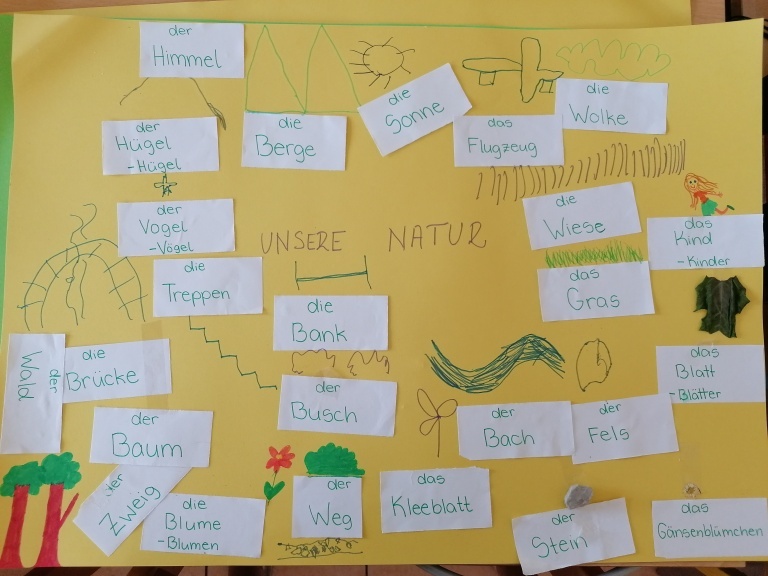 der
Himmel
der
Hügel
-Hügel
die
Berge
die
Sonne
das
Flugzeug
die
Wolke
der
Vogel
-Vögel
UNSERE NATUR
die
Wiese
das
Kind
-Kinder
die
Treppen
die
Bank
das
Gras
der
Wald
die
Brücke
der
Busch
das
Blatt
-Blätter
der
Baum
der
Bach
der
Fels
der
Zweig
die
Blume
-Blumen
der
Weg
das
Kleeblatt
der
Stein
das
Gänsenblümchen